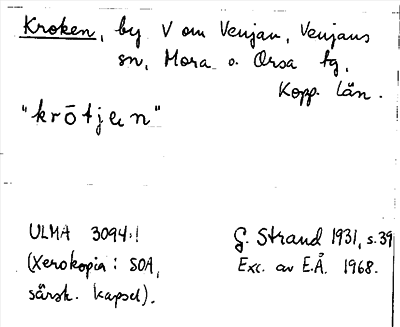 Kroken, by V om Venjan, Venjans
sn, Mora o. Orsa tg,
Kopp. Län.
"krōtjen"
ULMA 3094:1
(Xerokopia: SOA,
särsk. kapsel).
G. Strand 1931, s.39
Exc. av E.Å. 1968.